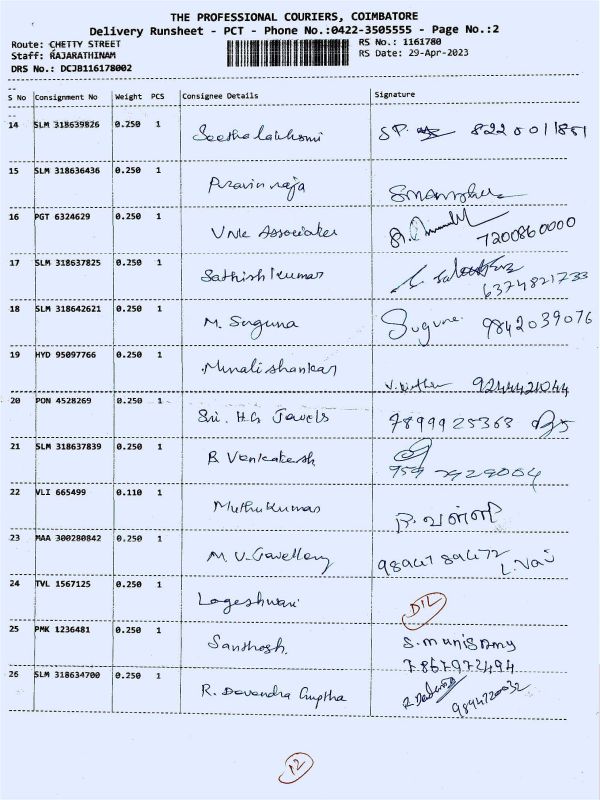 THE PROFESSIONAL COURIERS, COIMBATORE
Delivery Runsheet - PCT - Phone No.:0422-3505555 - Page No.:2
Route: CHETTY STREET RS No.: 1161780
Staff: RAJARATHINAM RS Date: 29-Apr-2023
DRS No.: DCJB116178002
S No Consignment No Weight PCS Consignee Details Signature
14 SLM 318639826 0.250 1 Seethalakhsmi SP. 822 0011851
15 SLM 318636436 0.250 1 Pravin raja
16 PGT 6324629 0.250 1 VNK Associates
7200860000
17 SLM 318637825 0.250 1 Sathish kumar
6374821733
18 SLM 318642621 0.250 1 M. Suguna Suguna. 9842039076
19 HYD 95097766 0.250 1 Minalishankar
9244421044
20 PON 4528269 0.250 1 Sri. HG Jewels 7899925368
21 SLM 318637839 0.250 1 B Venkatersh
959 7929004
22 VLI 665499 0.110 1 Muthukumar
23 MAA 300280842 0.250 1 M. V. Jwellery 9894789472
24 TVL 1567125 0.250 1 Logeshwari D/L
25 PMK 1236481 0.250 1 Santhosh. S. munisamy
7867972494
26 SLM 318634700 0.250 1 R. Devendra Guptha
9894720032
12